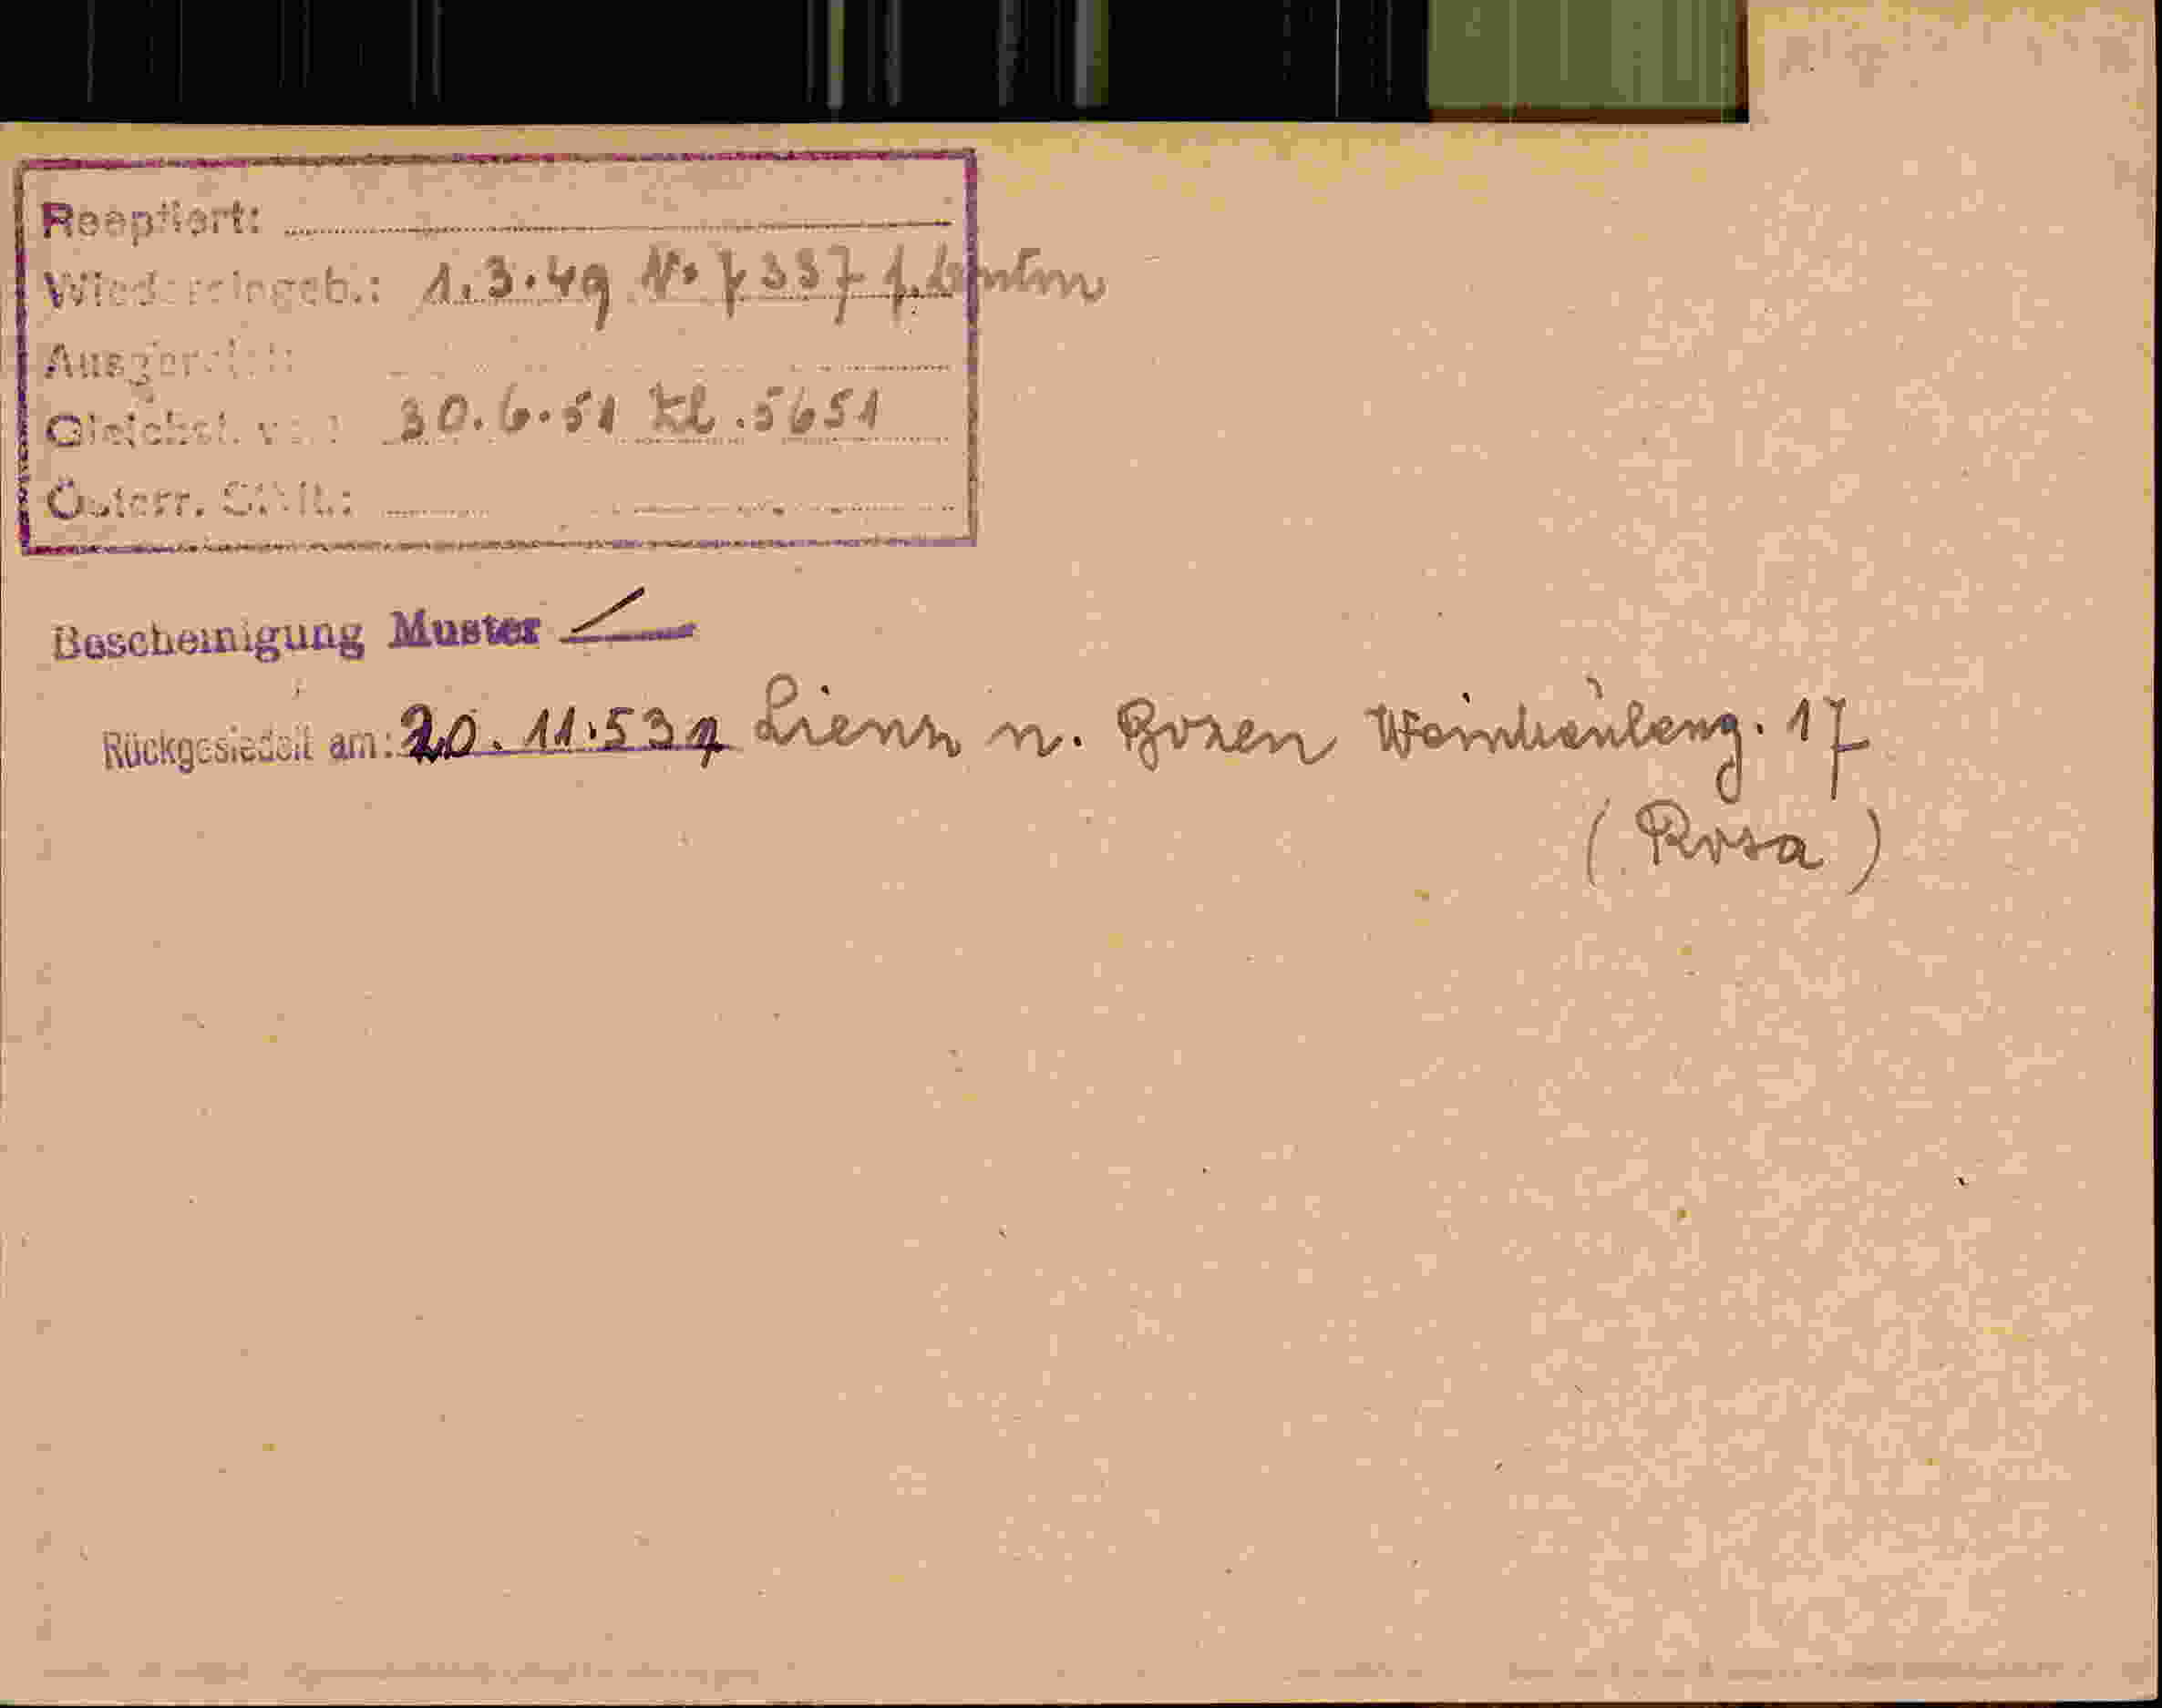 Reoptiert:
Wiedereingeb.: 1.3.49 N. 7337
Ausgereist:
Gleichst. v. : 30.6.51 Zl. 5651
Österr. StMt.:
Bescheinigung Muster /
Rückgesiedelt am: 20.11.53 Lienz n. Bozen 17
(Rosa)